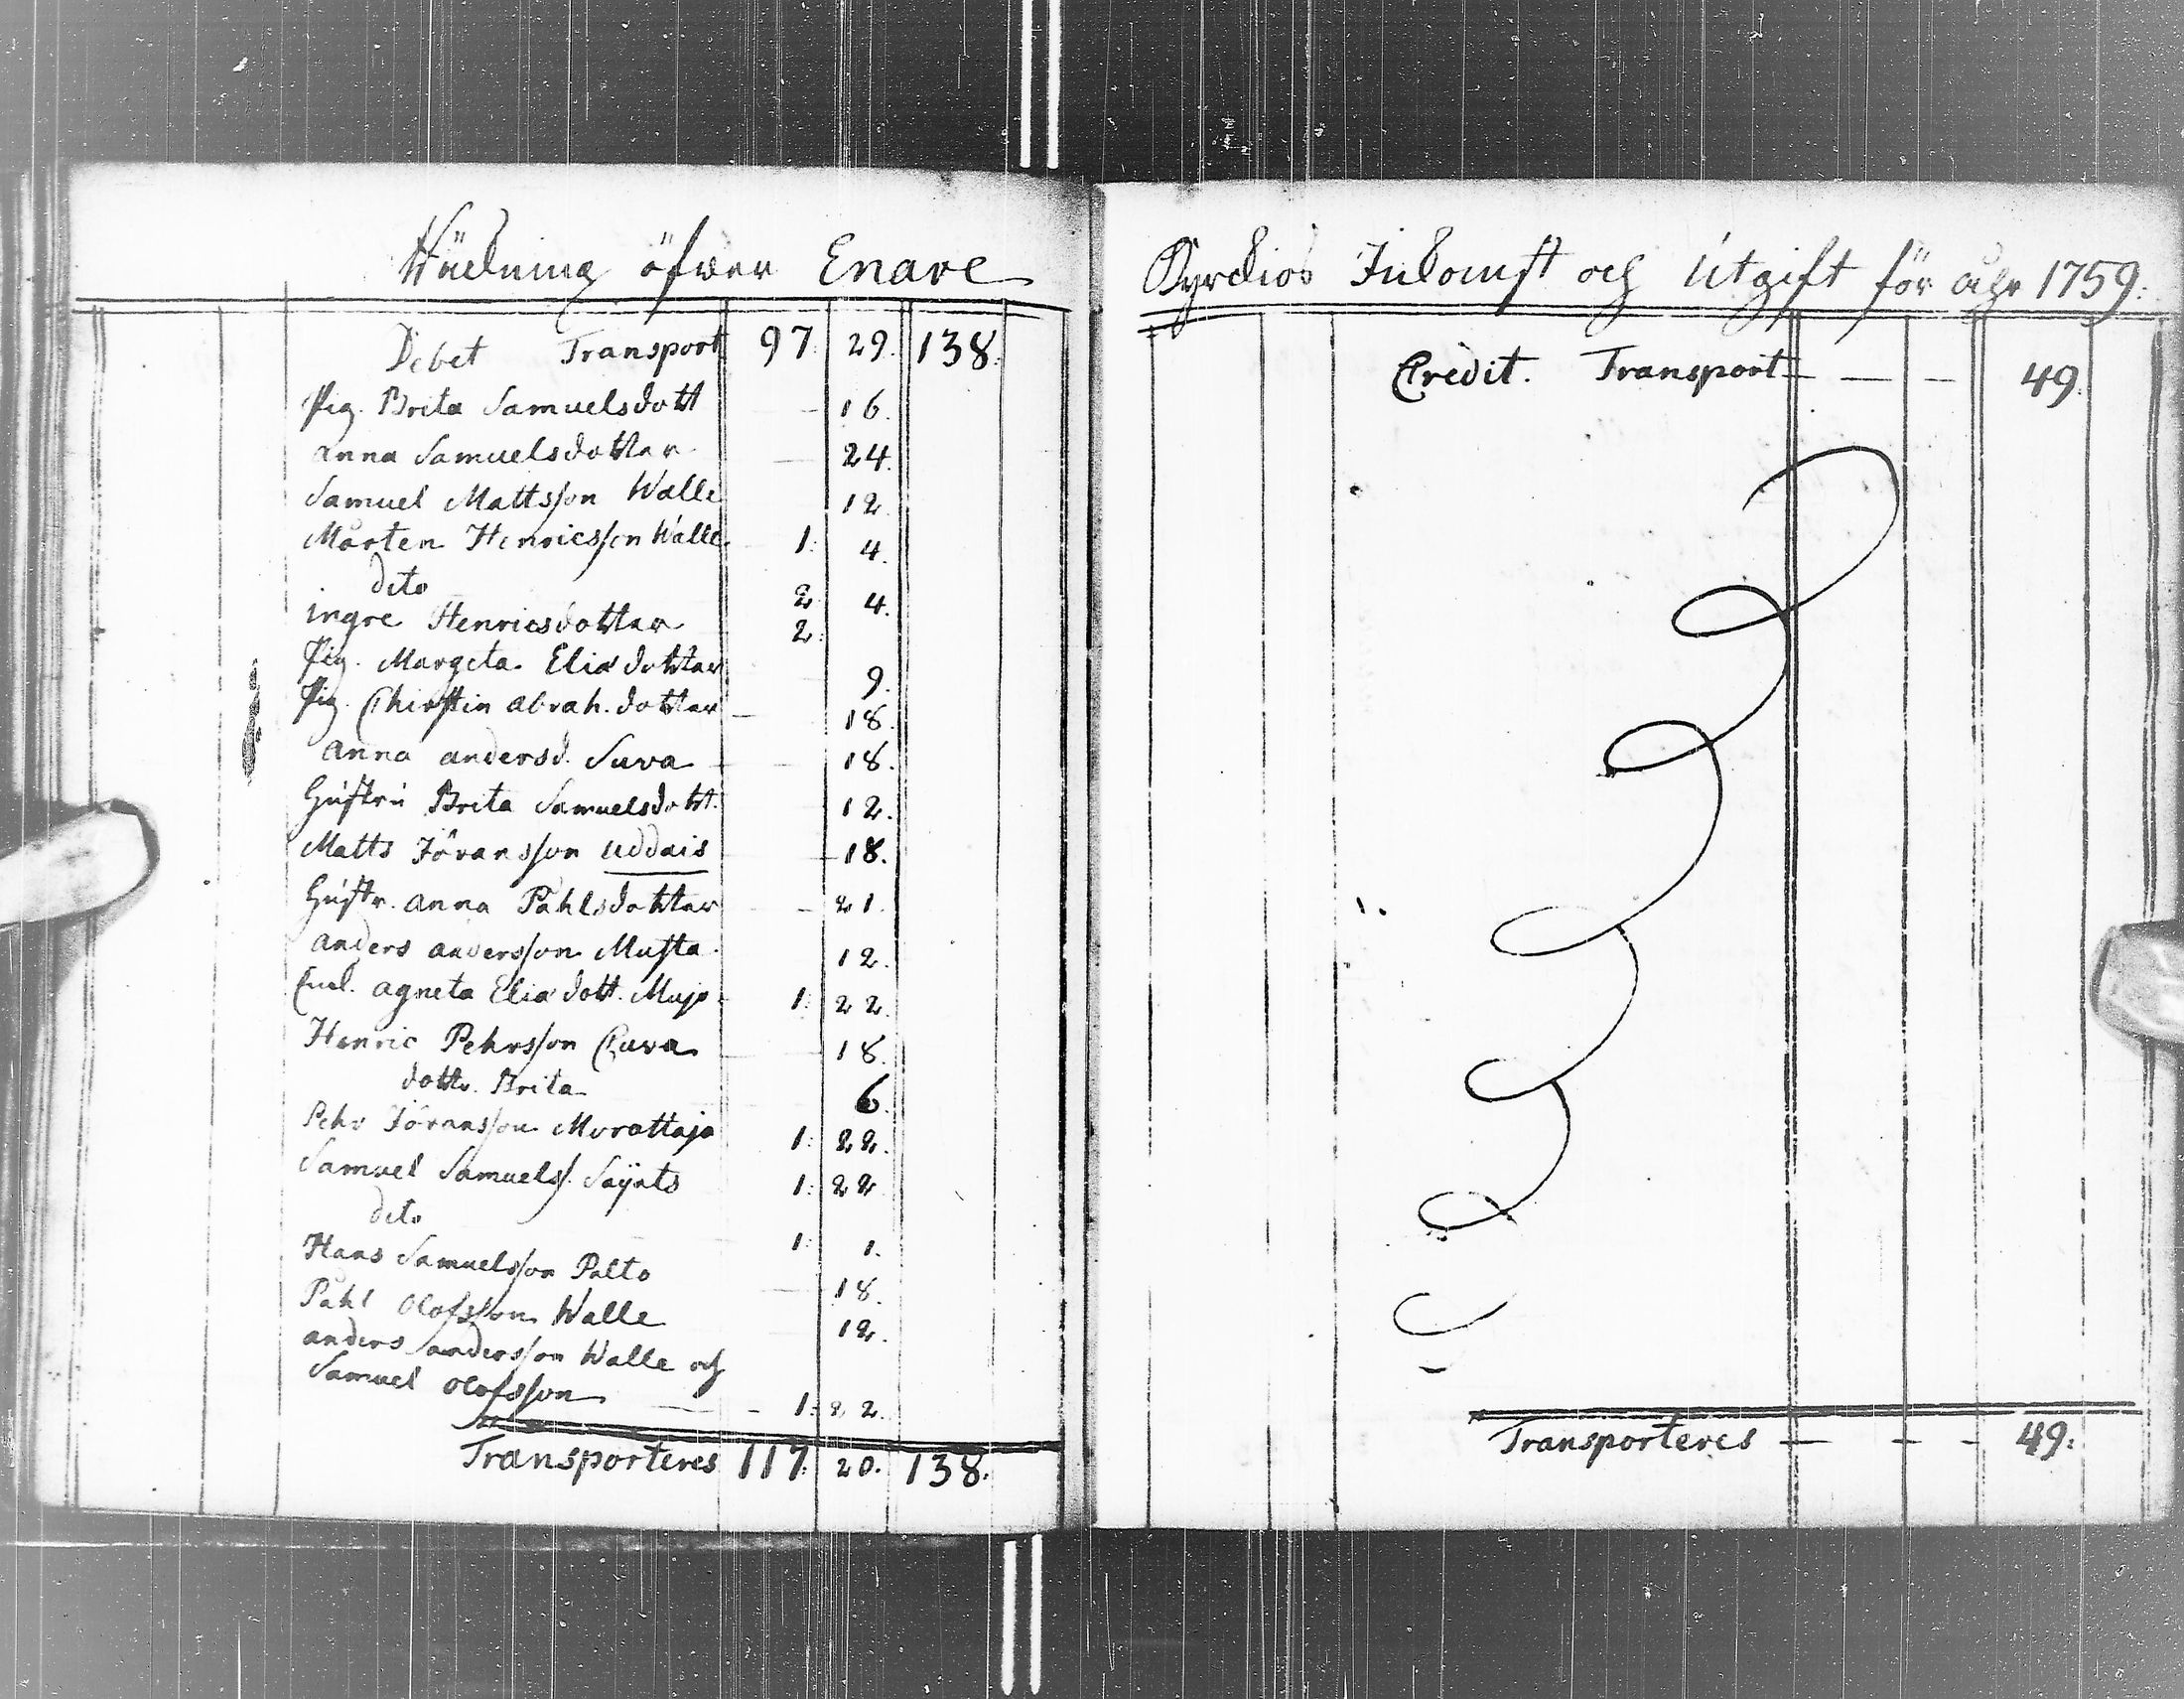 Räckning öfwer Enare
Debet Transport 97: 29. 138.
Pig. Brita Samuelsdott — 16.
Anna Samuelsdotter — 24.
Samuel Mattsson Walle 12.
Mårten Henricsson Walle 1: 4.
dito 2: 4.
ingre Henricsdotter 2:
Pig. Margeta Eliædotter 9.
Pig. Chirstin Abrah. dotter — 18.
Anna andersd. Suva — 18.
Hustru Brita Samuelsdott. 12.
Matts Jöransson Uddais — 18.
Hustr. Anna Påhlsdotter — 21.
Anders andersson Musta 12.
Enk. Agneta Eliædott. Mujo 1: 22.
Henric Pehrsson Cuva 18.
dottr. Brita 6.
Pehr Jöransson Morottaja 1: 22.
Samuel Samuelss. Saÿets 1: 22.
dito 1: 1.
Hans Samuelsson Palto — 18.
Påhl Olofsson Walle 12.
anders andersson Walle och
Samuel Olofsson — - 1: 22.
Transporteres 117: 20. 138.
Kyrckios Inkomst och Utgift för åhr 1759:
Credit. Transport — — — 49.
Transporteres — - - 49: